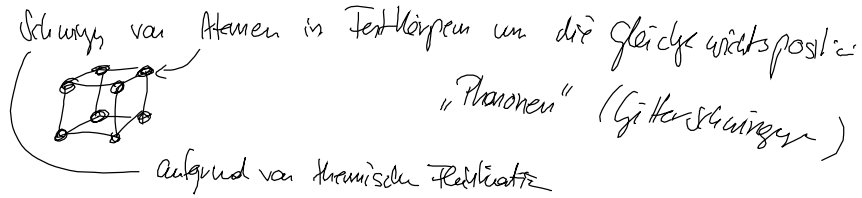 Schwingen von Atomen in Festkörpern um die Gleichgewichtsposition
„Phononen" (Gitterschwingungen)
aufgrund von thermischen Fluktuation